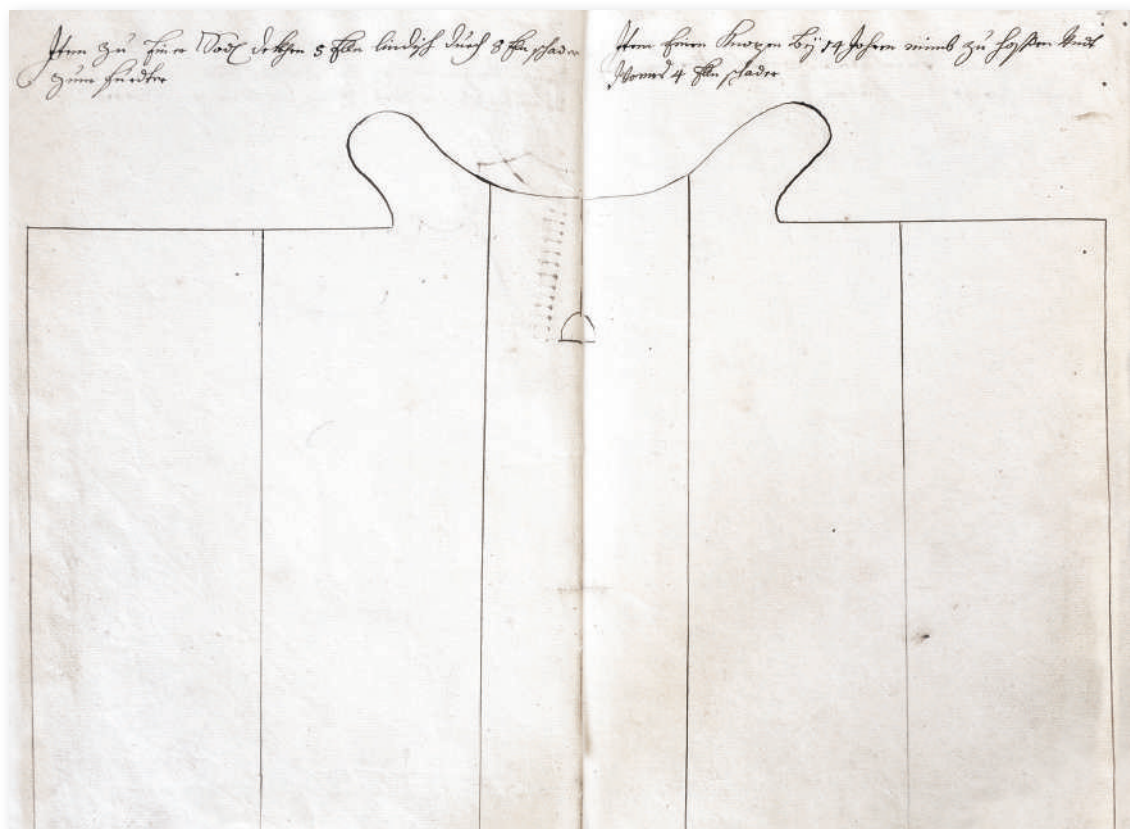 Item zu Einer dekhen 5 Elln lindisch duech 8 Elln schader
Zum fuedter
Item Einen Knaben bÿ 14 Johren nimb zu hossen undt
Wames 4 Elln schader